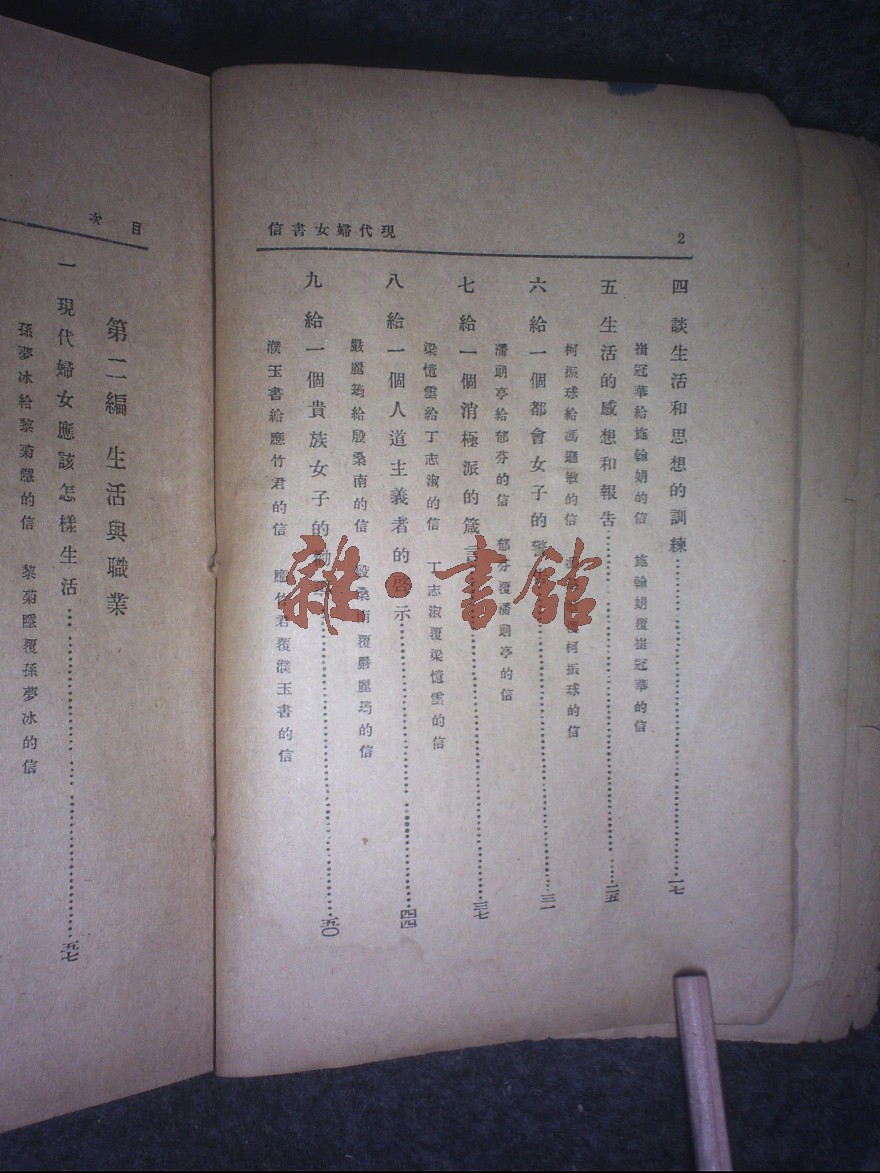 現代婦女書信
2
四 談生活和思想的訓練……一七
崔冠華給施翰娟的信 施翰娟覆崔冠華的信
五 生活的感想和報告……二五
柯振球給馮遜敏的信 柯振球的信
六 給一個都會女子的……三一
潘朗亭給郁芬的信 郁芬覆潘朗亭的信
七 給一個消極派的箴言……三七
梁憶雲給丁志淑的信 丁志淑覆梁憶雲的信
八 給一個人道主義者的啓示……四四
嚴麗筠給殷桑南的信 殷桑南覆嚴麗筠的信
九 給一個貴族女子的……五〇
濮玉書給應竹君的信 應竹君覆濮玉書的信
目次
第二編 生活與職業
一 現代婦女應該怎樣生活……五七
孫夢冰給黎菊隱的信 黎菊隱覆孫夢冰的信
雜·書館